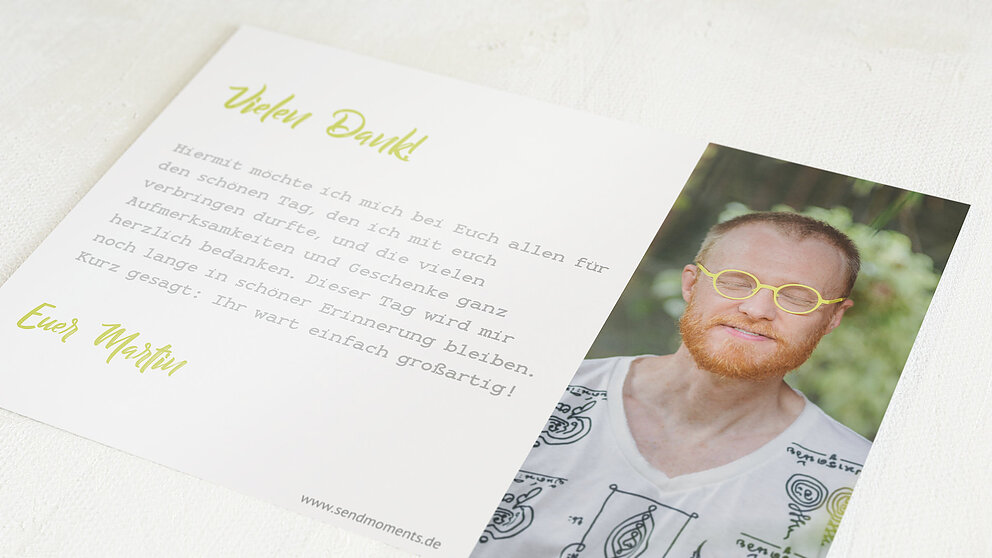 Vielen Dank!
Hiermit möchte ich mich bei Euch allen für
den schönen Tag, den ich mit euch
verbringen durfte, und die vielen
Aufmerksamkeiten und Geschenke ganz
herzlich bedanken. Dieser Tag wird mir
noch lange in schöner Erinnerung bleiben.
Kurz gesagt: Ihr wart einfach großartig!
Euer Martin
www.sendmoments.de